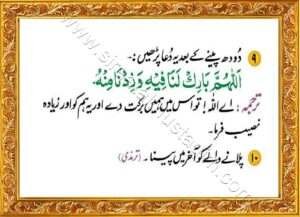 ۹ دُودھ پینے کے بعد یہ دُعا پڑھیں :-
اَللّٰهُمَّ بَارِكْ لَنَا فِيْهِ وَزِدْنَا مِنْهُ
ترجمہ : اے اللہ ! تو اس میں ہمیں برکت دے اور یہ ہم کو اور زیادہ
نصیب فرما۔
۱۰ پلانے والے کو آخر میں پینا۔ (ترمذی)